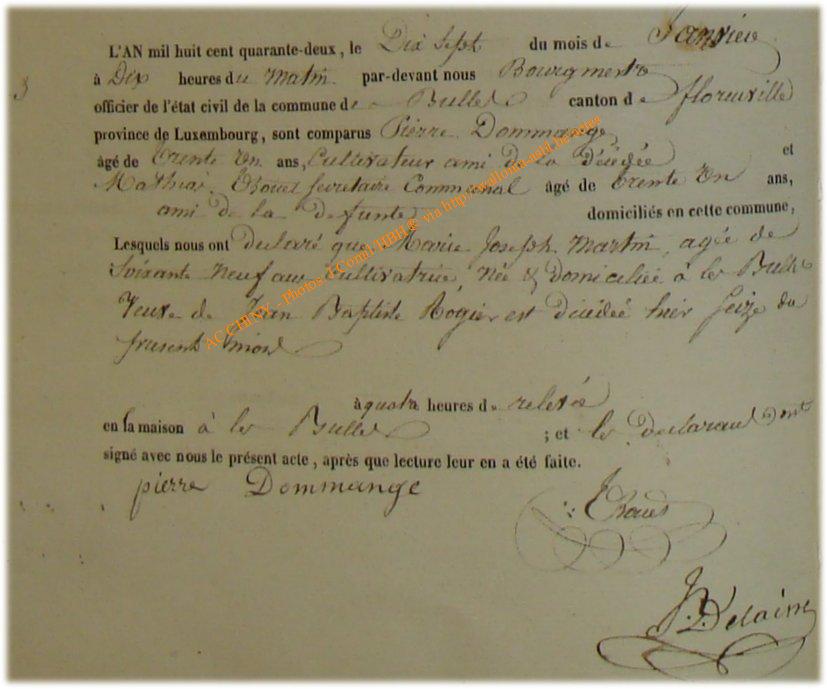 L'AN mil huit cent quarante-deux, le Dix Sept du mois de Janvier
3
à Dix heures du Matin par-devant nous Bourgmestre
officier de l'état civil de la commune de Bulles canton de florenville
province de Luxembourg, sont comparus Pierre Dommange
âgé de trente un ans, Cultivateur ami de la décédée et
Mathias secretaire Communal âgé de trente un ans,
ami de la defunte domiciliés en cette commune,
Lesquels nous ont declaré que Marie Joseph Martin, agée de
Soixante neuf ans Cultivatrice, née & domiciliée à les Bulles
Veuve de Jean Baptiste Rogier est décédée hier Seize du
present mois
à quatre heures de relevée
en sa maison à les Bulles ; et les declarans ont
signé avec nous le présent acte, après que lecture leur en a été faite.
pierre Dommange
ACCHINY - Photos J.Comil/HBH® via http://wallonia-asbl.be/actes